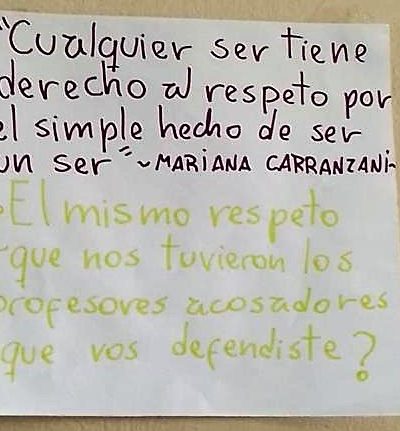 "Cualquier ser tiene
derecho al respeto por
el simple hecho de ser
un ser" ~ MARIANA CARRANZANI~
¿El mismo respeto
que nos tuvieron los
profesores acosadores
que vos defendiste?